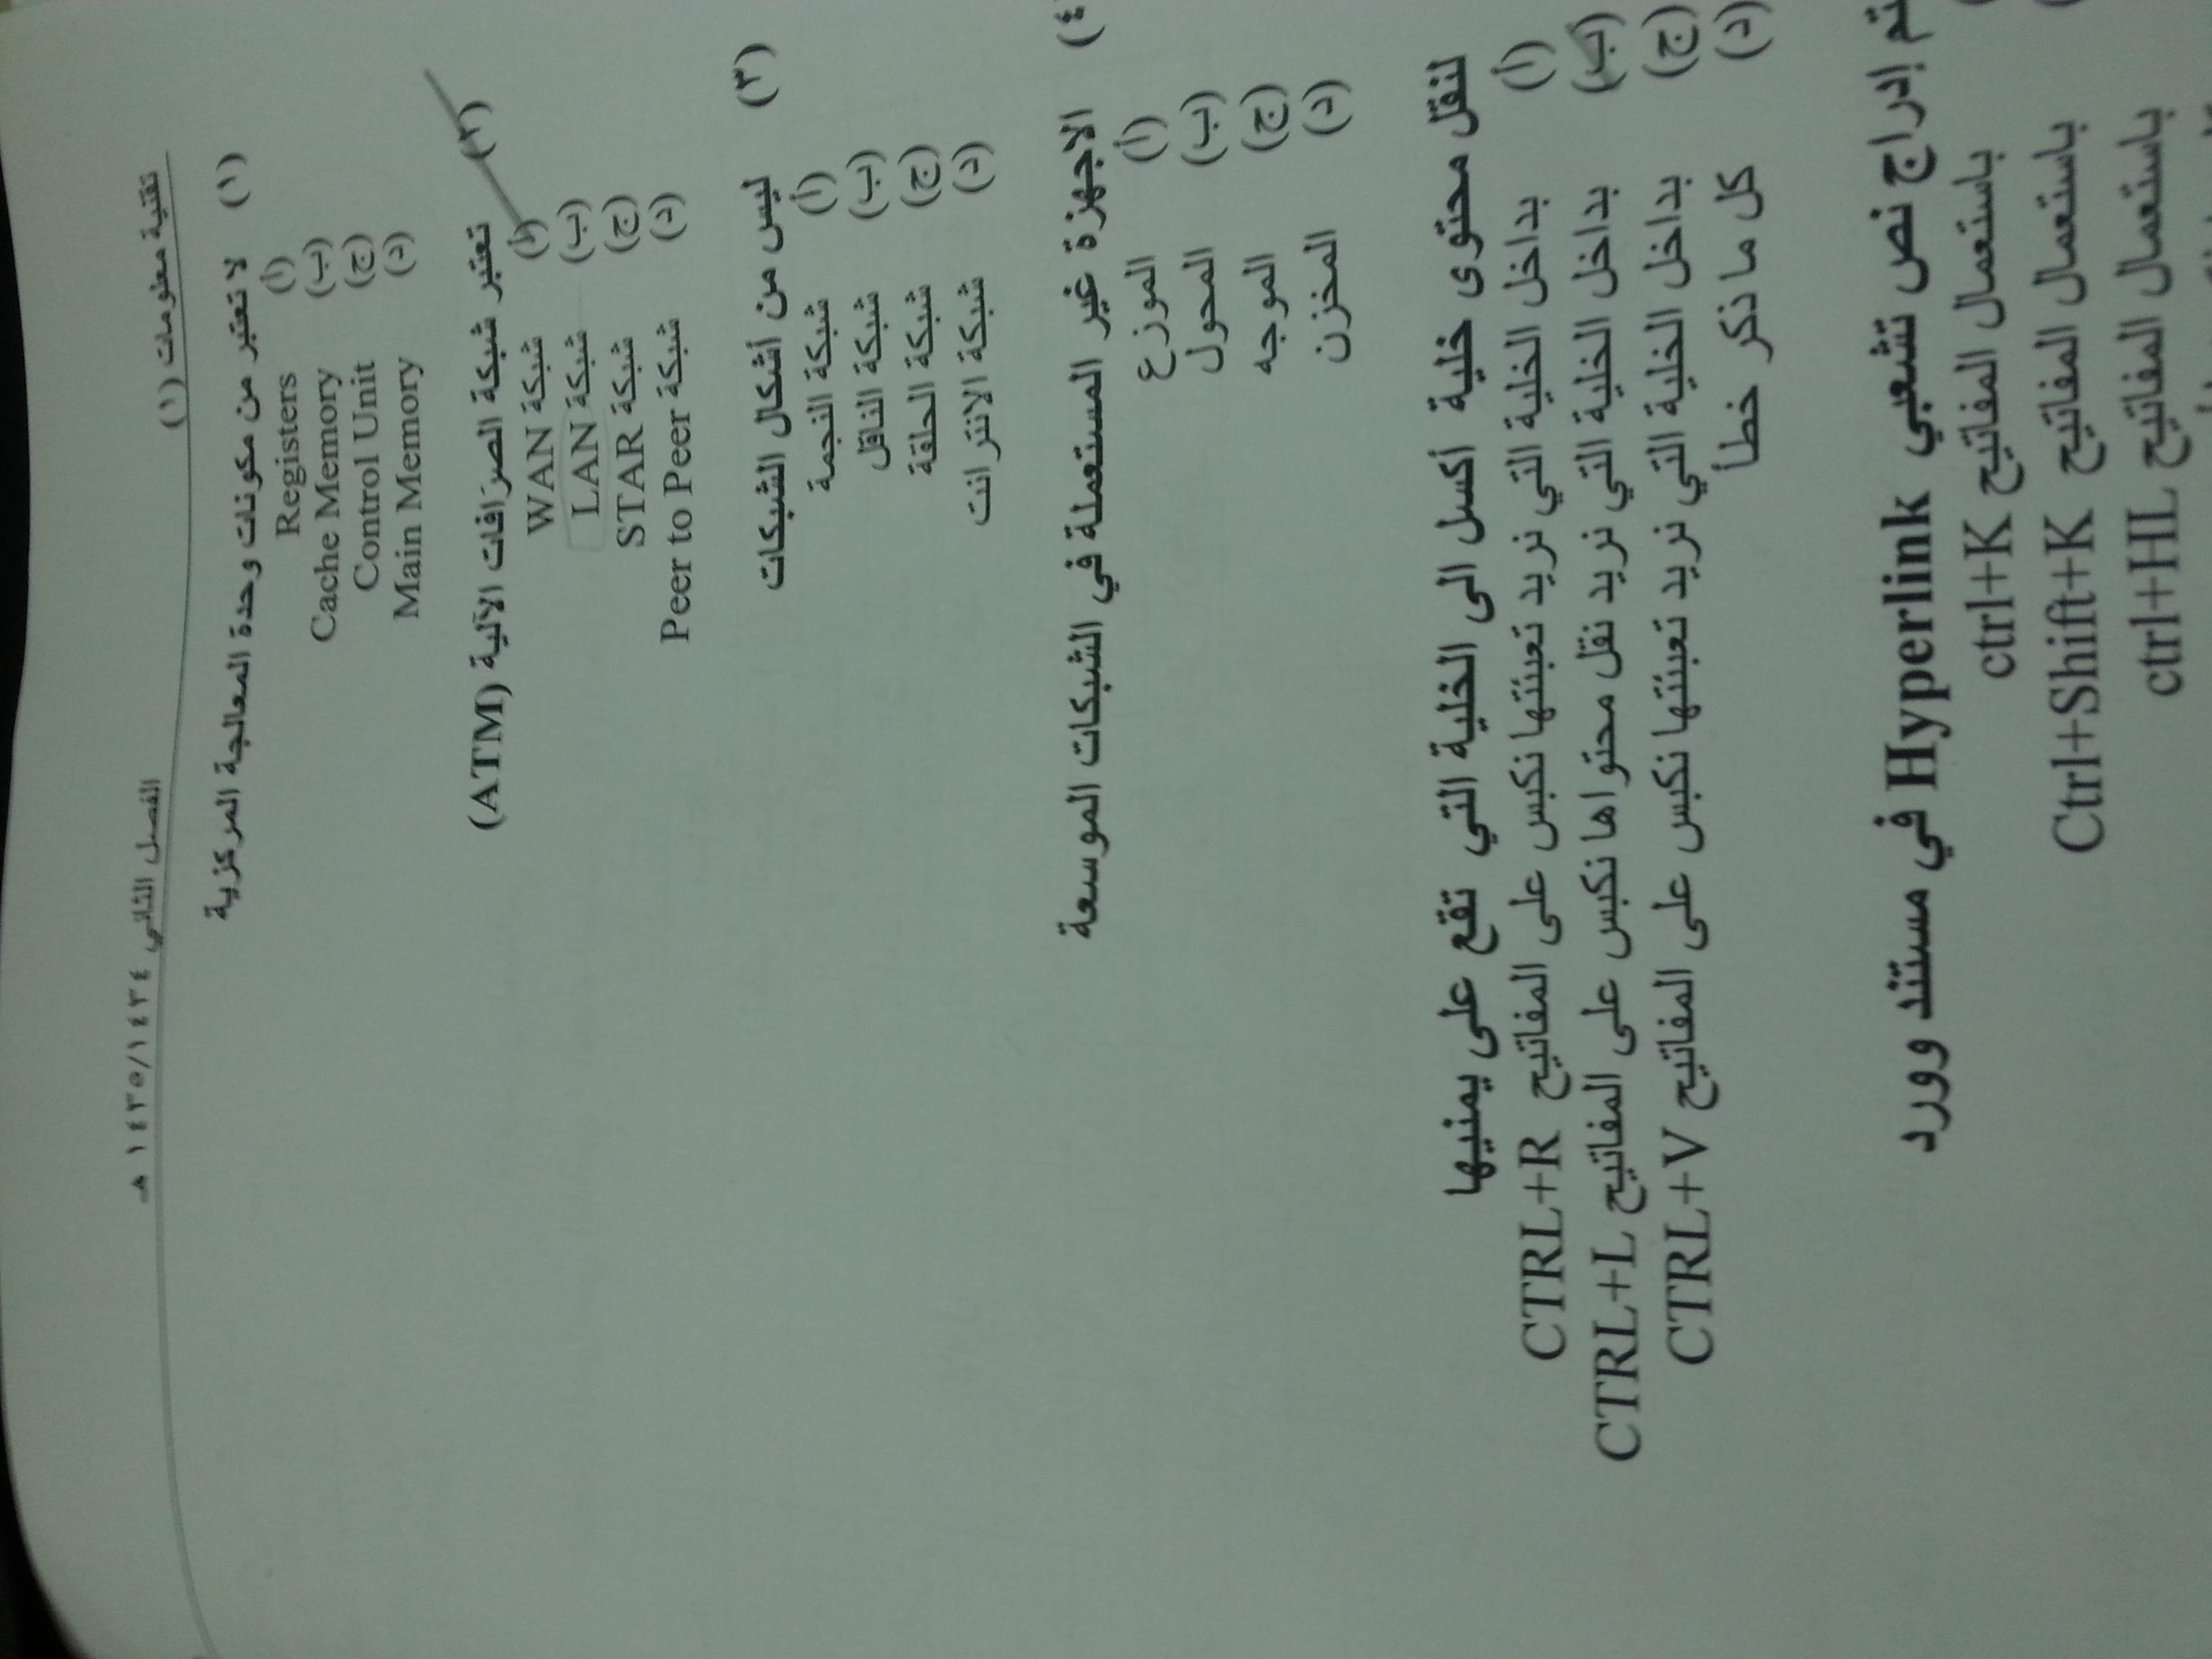 تقنية معلومات (١) الفصل الثاني ١٤٣٥/١٤٣٤ هـ
(١) لا تعتبر من مكونات وحدة المعالجة المركزية
(أ) Registers
(ب) Cache Memory
(ج) Control Unit
(د) Main Memory
(٢) تعتبر شبكة الصرافات الآلية (ATM)
(أ) شبكة WAN
(ب) شبكة LAN
(ج) شبكة STAR
(د) شبكة Peer to Peer
(٣) ليس من أشكال الشبكات
(أ) شبكة النجمة
(ب) شبكة الناقل
(ج) شبكة الحلقة
(د) شبكة الانترانت
(٤) الاجهزة غير المستعملة في الشبكات الموسعة
(أ) الموزع
(ب) المحول
(ج) الموجه
(د) المخزن
لنقل محتوى خلية اكسل الى الخلية التي تقع على يمنيها
(أ) بداخل الخلية التي نريد تعبئتها نكبس على المفاتيح CTRL+R
(ب) بداخل الخلية التي نريد نقل محتواها نكبس على المفاتيح CTRL+L
(ج) بداخل الخلية التي نريد تعبئتها نكبس على المفاتيح CTRL+V
(د) كل ما ذكر خطأ
تم إدراج نص تشعبي Hyperlink في مستند وورد
باستعمال المفاتيح ctrl+K
باستعمال المفاتيح Ctrl+Shift+K
باستعمال المفاتيح ctrl+HL